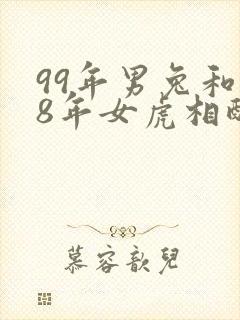 99年男兔和
8年女虎相配
慕容歆儿